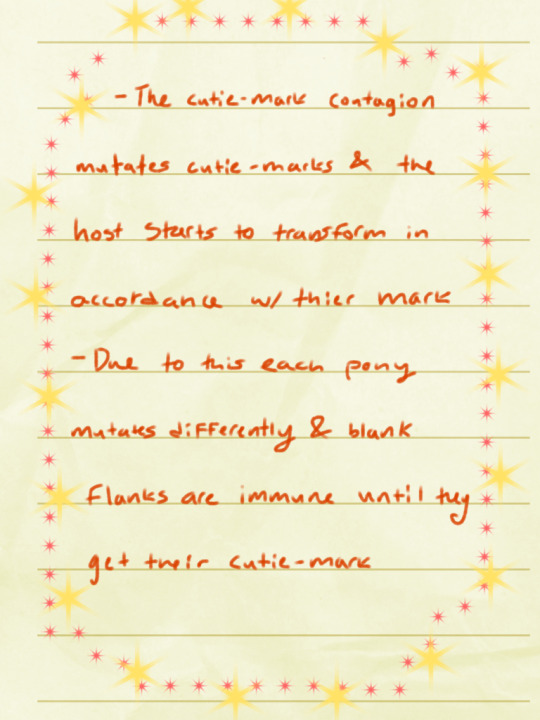 - The cutie-mark contagion
mutates cutie-marks & the
host starts to transform in
accordance w/ thier mark
- Due to this each pony
mutates differently & blank
flanks are immune until they
get their cutie-mark